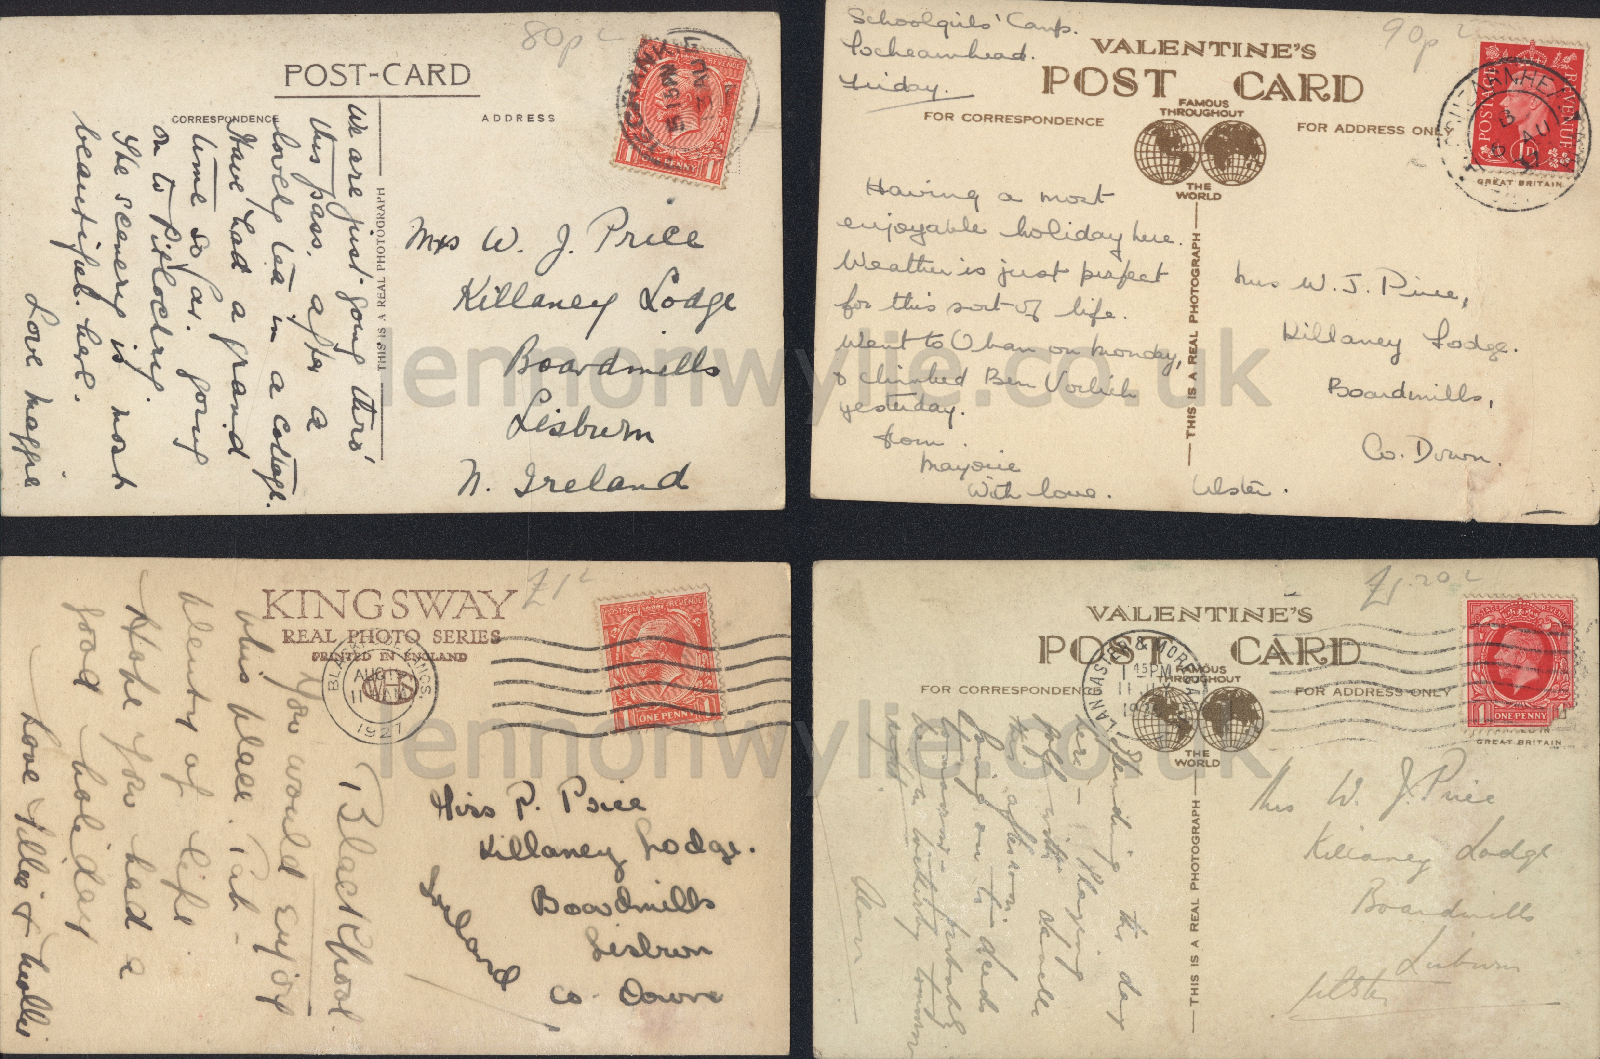 80p
POST-CARD
CORRESPONDENCE
ADDRESS
THIS IS A REAL PHOTOGRAPH
We are just going thro'
this pass, after a
lovely tea in a cottage.
Have had a grand
time so far. going
on to Pitlochry.
The scenery is most
beautiful here.
Love Maggie
Mrs W. J. Price
Killaney Lodge
Boardmills
Lisburn
N. Ireland
POSTAGE REVENUE
ONE PENNY
Schoolgirls' Camp.
Lochearnhead.
Friday.
90p
VALENTINE'S
POST CARD
FAMOUS
THROUGHOUT
THE
WORLD
FOR CORRESPONDENCE
FOR ADDRESS ONLY
POSTAGE REVENUE
1D
GREAT BRITAIN
LOCHEARNHEAD
AU
THIS IS A REAL PHOTOGRAPH
Having a most
enjoyable holiday here.
Weather is just perfect
for this sort of life.
Went to Oban on Monday,
& climbed Ben Vorlich
yesterday.
from
Marjorie
With love.
Mrs W. J. Price,
Killaney Lodge.
Boardmills,
Co. Down.
Ulster.
lennonwylie.co.uk
£1
KINGSWAY
REAL PHOTO SERIES
PRINTED IN ENGLAND
AUG
11 AM
1927
POSTAGE REVENUE
ONE PENNY
Blackpool.
You would enjoy
this place. Pat -
plenty of life
Hope you had a
good holiday
Love Tillie & Mollie
Miss P. Price
Killaney Lodge.
Boardmills
Lisburn
Co. Down
Ireland
£1.20
VALENTINE'S
POST CARD
FAMOUS
THROUGHOUT
THE
WORLD
FOR CORRESPONDENCE
FOR ADDRESS ONLY
LANCASTER & MORECAMBE
1 45 PM
11 JL
ONE PENNY
GREAT BRITAIN
THIS IS A REAL PHOTOGRAPH
Spending the day
here - playing
golf with
this afternoon
Going on to Leeds
tomorrow - probably
Mrs W. J. Price
Killaney Lodge
Boardmills
Lisburn
Ulster
lennonwylie.co.uk